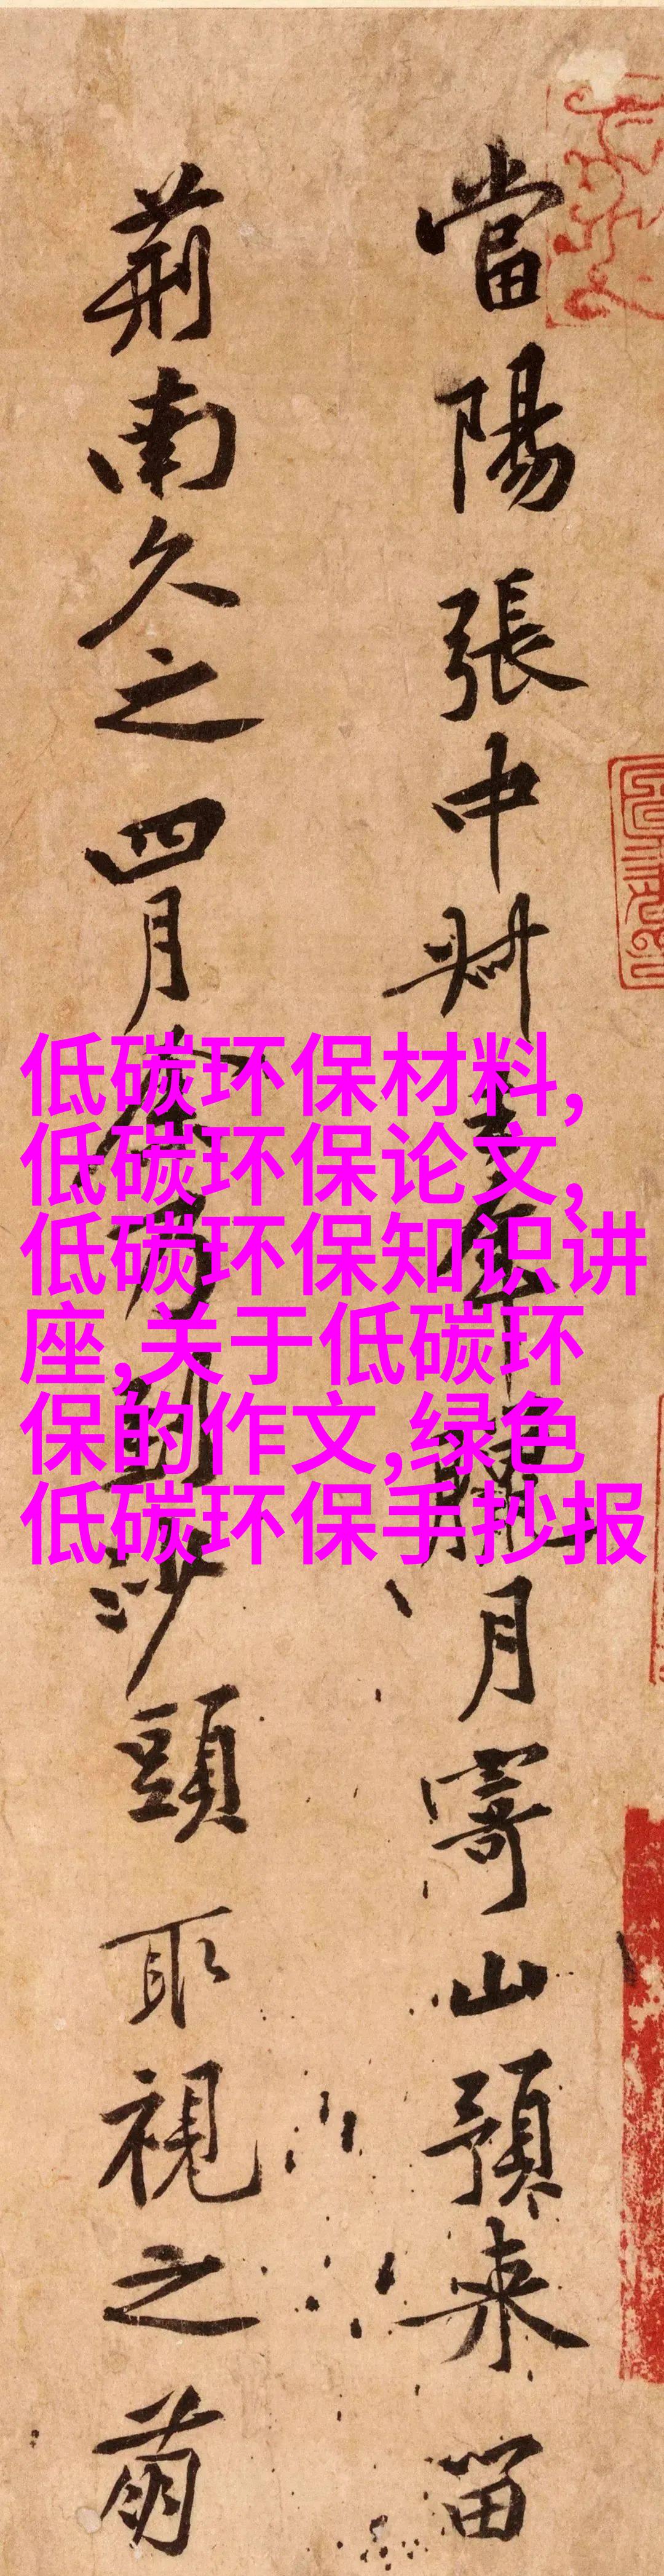 當陽張中叔去年臘月寄山預来留
荊南久之四月余乃到沙頭取視之萌
低碳环保材料,
低碳环保论文,
低碳环保知识讲
座,关于低碳环
保的作文,绿色
低碳环保手抄报